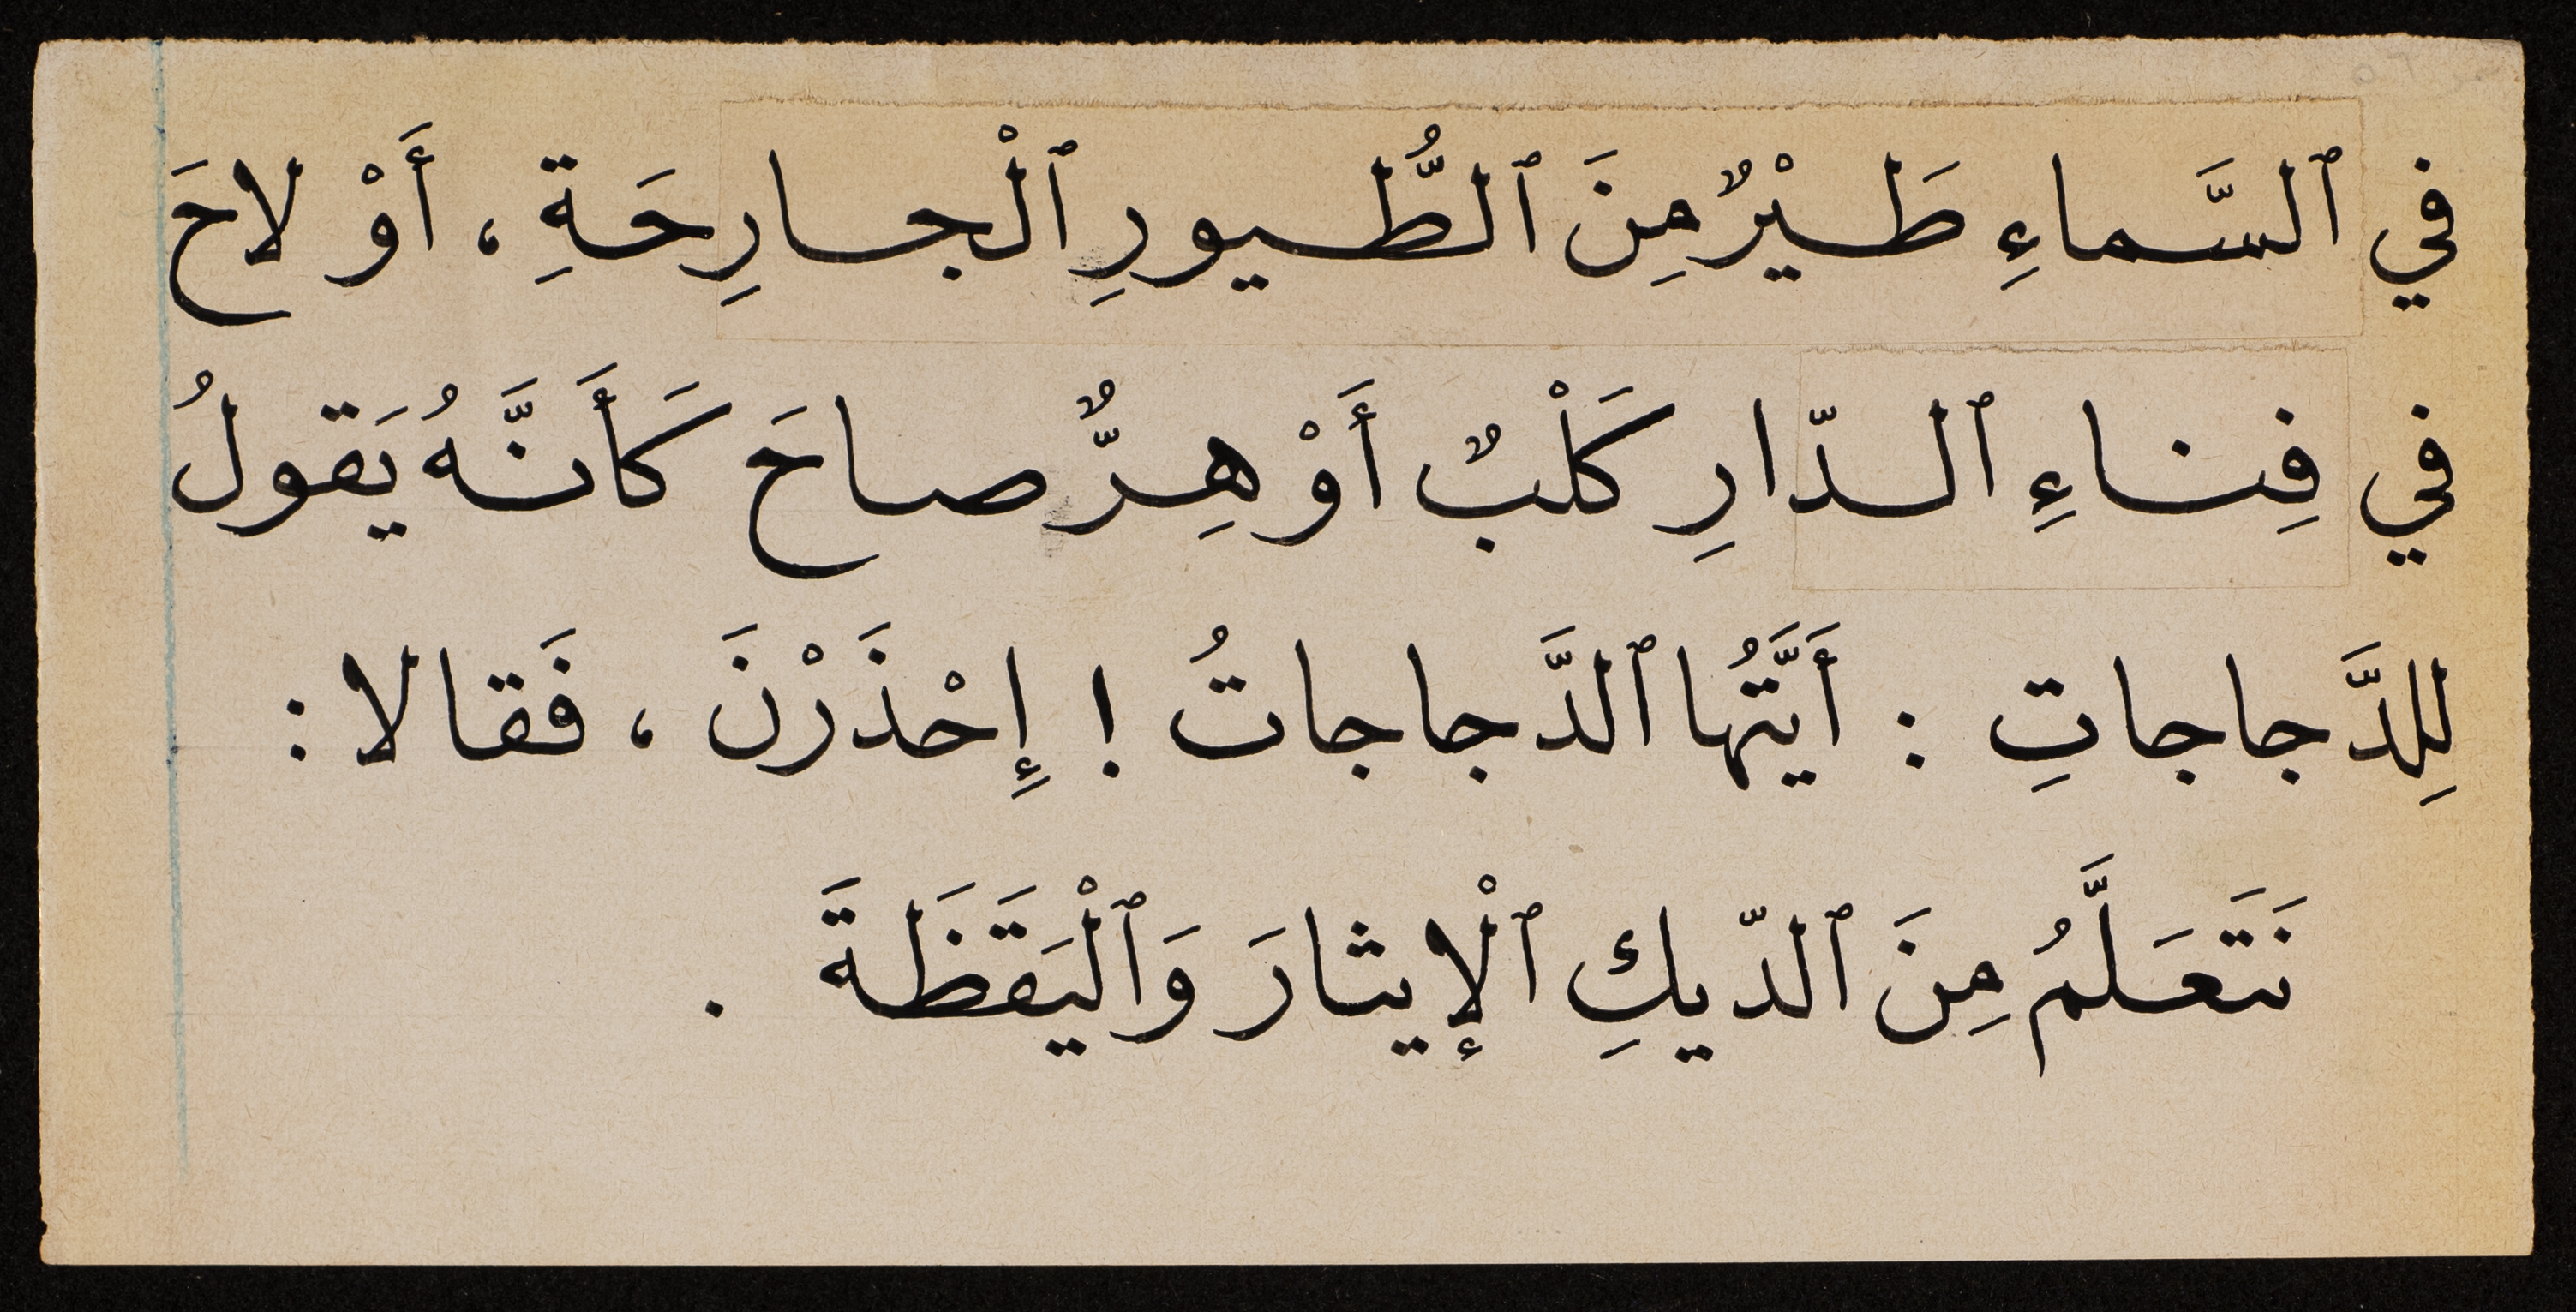 في ٱلسَّماءِ طَيْرٌ مِنَ ٱلطُّيورِ ٱلْجارِحَةِ ، أَوْ لاحَ
في فِناءِ ٱلدّارِ كَلْبٌ أَوْ هِرٌّ صاحَ كَأَنَّهُ يَقولُ
لِلدَّجاجاتِ : أَيَّتُها ٱلدَّجاجاتُ ! إِحْذَرْنَ ، فَقالا :
نَتَعَلَّمُ مِنَ ٱلدّيكِ ٱلْإيثارَ وَٱلْيَقَظَةَ .